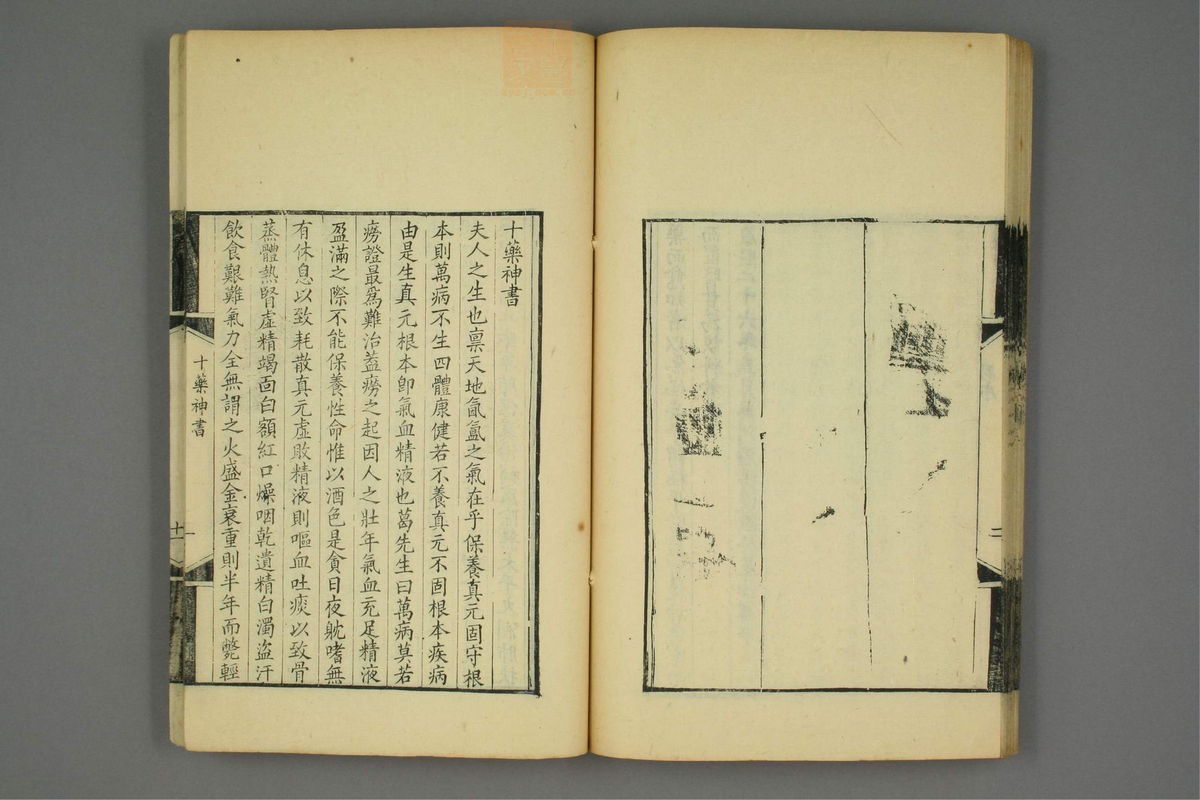 十藥神書
夫人之生也稟天地氤氳之氣在乎保養真元固守根
本則萬病不生四體康健若不養真元不固根本疾病
由是生真元根本卽氣血精液也葛先生曰萬病莫若
癆證最爲難治蓋癆之起因人之壯年氣血充足精液
盈滿之際不能保養性命惟以酒色是貪日夜躭嗜無
有休息以致耗散真元虛敗精液則嘔血吐痰以致骨
蒸體熱腎虛精竭面白額紅口燥咽乾遺精白濁盜汗
飲食艱難氣力全無謂之火盛金衰重則半年而斃輕
十藥神書
十一